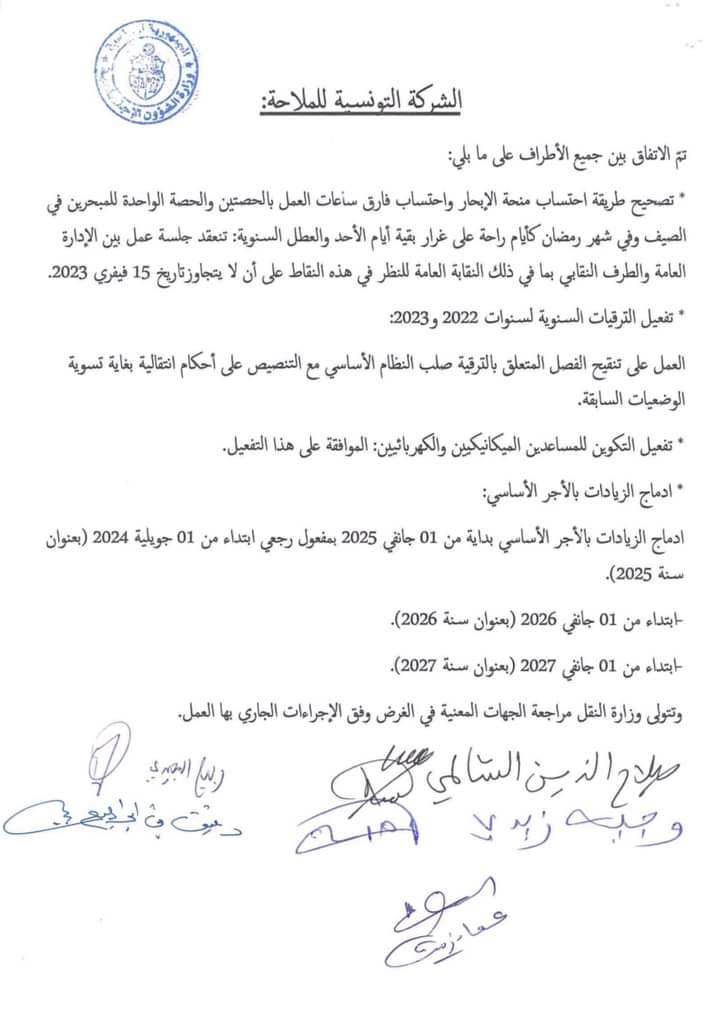 الجمهورية التونسية
وزارة الشؤون الاجتماعية
الشركة التونسية للملاحة:
تمّ الاتفاق بين جميع الأطراف على ما يلي:
* تصحيح طريقة احتساب منحة الإبحار واحتساب فارق ساعات العمل بالحصتين والحصة الواحدة للمبحرين في
الصيف وفي شهر رمضان كأيام راحة على غرار بقية أيام الأحد والعطل السنوية: تنعقد جلسة عمل بين الإدارة
العامة والطرف النقابي بما في ذلك النقابة العامة للنظر في هذه النقاط على أن لا يتجاوز تاريخ 15 فيفري 2023.
* تفعيل الترقيات السنوية لسنوات 2022 و2023:
العمل على تنقيح الفصل المتعلق بالترقية صلب النظام الأساسي مع التنصيص على أحكام انتقالية بغاية تسوية
الوضعيات السابقة.
* تفعيل التكوين للمساعدين الميكانيكيين والكهربائيين: الموافقة على هذا التفعيل.
* ادماج الزيادات بالأجر الأساسي:
ادماج الزيادات بالأجر الأساسي بداية من 01 جانفي 2025 بمفعول رجعي ابتداء من 01 جويلية 2024 (بعنوان
سنة 2025).
-ابتداء من 01 جانفي 2026 (بعنوان سنة 2026).
-ابتداء من 01 جانفي 2027 (بعنوان سنة 2027).
وتتولى وزارة النقل مراجعة الجهات المعنية في الغرض وفق الإجراءات الجاري بها العمل.
صلاح الدين السالمي
وجيه زيدي